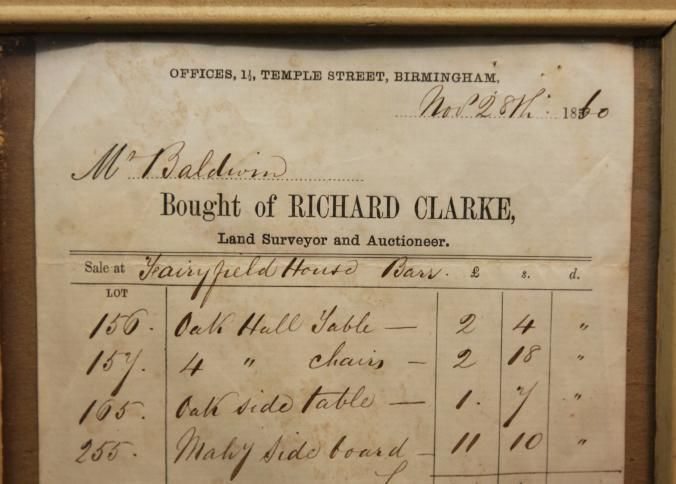 OFFICES, 1½, TEMPLE STREET, BIRMINGHAM,
Novr 28th 1860
Mr Baldwin
Bought of RICHARD CLARKE,
Land Surveyor and Auctioneer.
Sale at Fairyfield House Barr. £ s. d.
LOT
156. Oak Hall Table — 2 4 "
157. 4 " chairs — 2 18 "
165. Oak side table — 1. 7 "
255. Mahy side board — 11 10 "